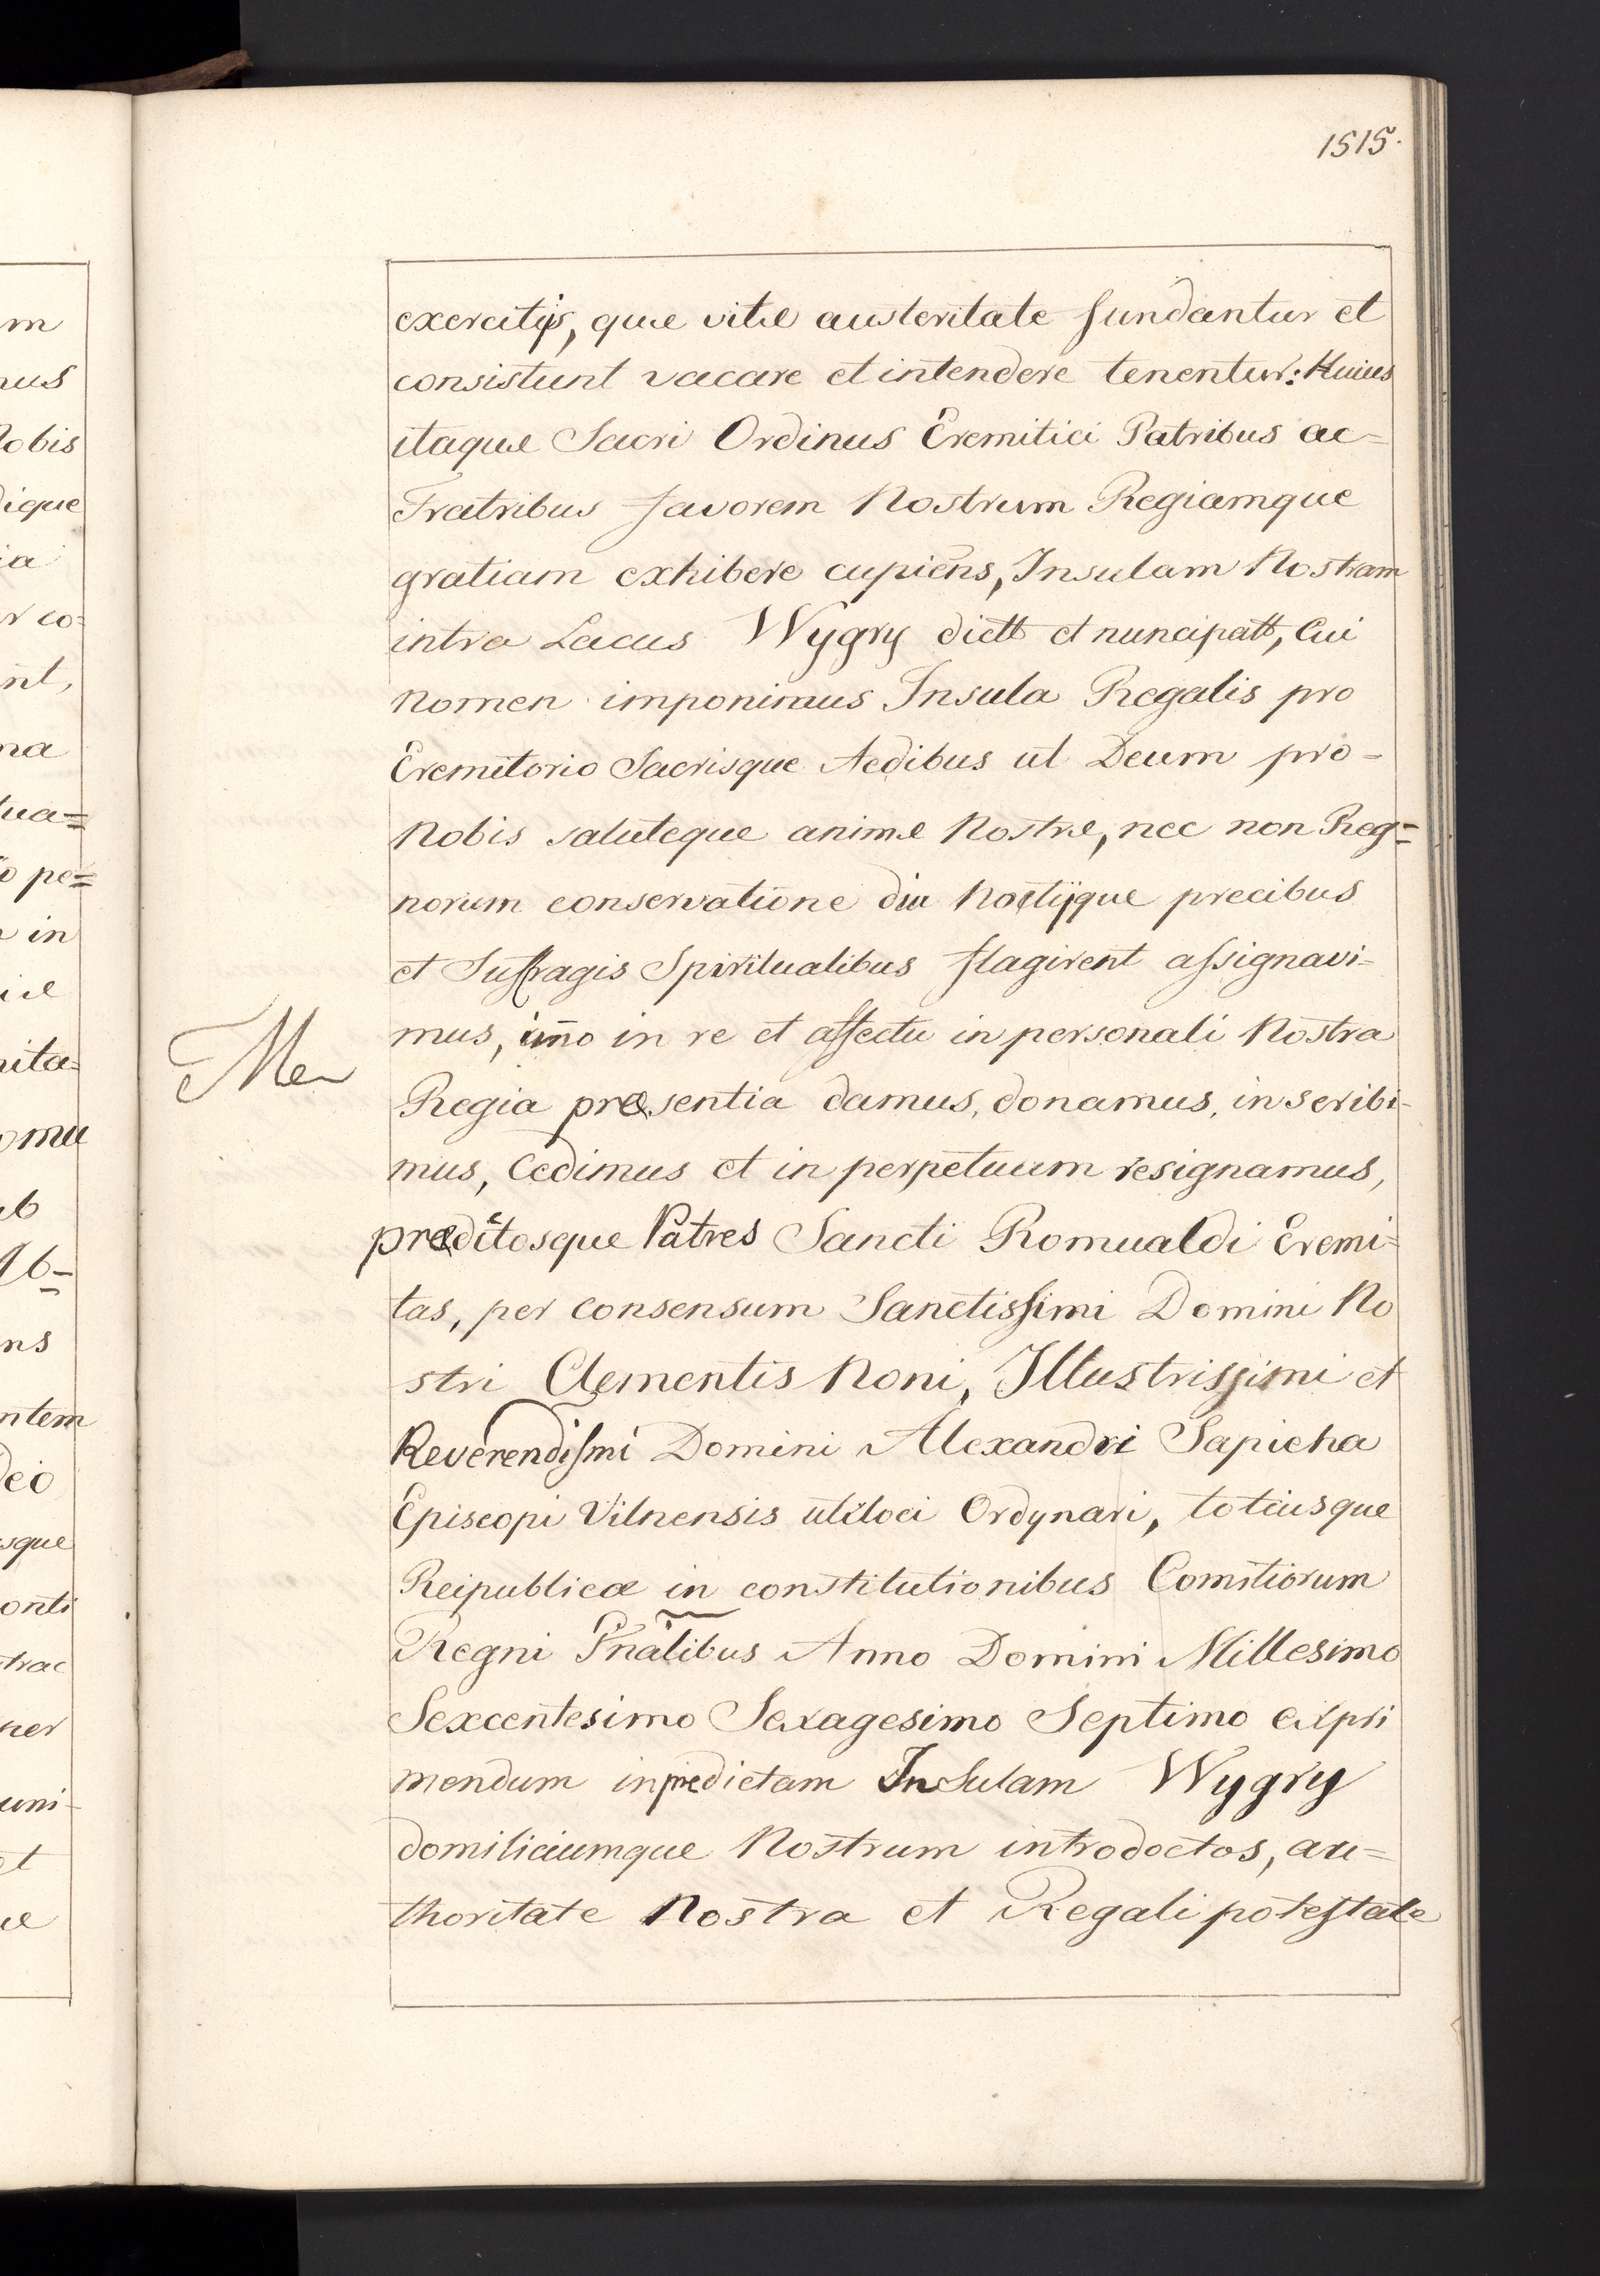 1515.
exercitijs, quæ vitæ austeritate fundantur et
consistunt vacare et intendere tenentur: Huius
itaque Sacri Ordinus Eremitici Patribus ac=
Fratribus favorem Nostrum Regiamque
gratiam exhibere cupiens, Insulam Nostram
intra Lacus Wygry dictt et nuncipatt, Cui
Nomen imponimus Insula Regalis pro
Eremitorio Sacrisque Aedibus ut Deum pro=
Nobis saluteque animæ Nostræ, nec non Reg=
norum conservatione diu Noctijque precibus
et Suffragis Spiritualibus flagirent assignavi=
mus, imo in re et affectu in personali Nostra
Regia præsentia damus, donamus, inscribi=
mus, Cedimus et in perpetuum resignamus,
prædctosque Patres Sancti Romualdi Eremi=
tas, per consensum Sanctissimi Domini No
stri Clementis Noni, Illustrissimi et
Reverendismi Domini Alexandri Sapieha
Episcopi Vilnensis uti loci Ordynari, totiusque
Reipublicæ in constitutionibus Comitiorum
Regni Gnalibus Anno Domini Millesimo
Sexcentesimo Sexagesimo Septimo expri
mendum in prædictam Insulam Wygry
domiliciumque Nostrum introdoctos, au=
thoritate Nostra et Regali potestate